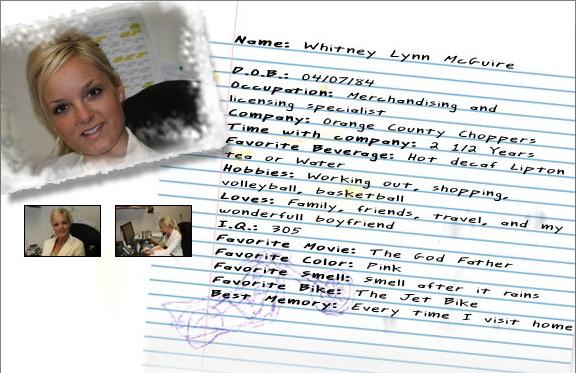 Name: Whitney Lynn McGuire
D.O.B.: 04/07/84
Occupation: Merchandising and
licensing specialist
Company: Orange County Choppers
Time with company: 2 1/2 Years
Favorite Beverage: Hot decaf Lipton
tea or Water
Hobbies: Working out, shopping,
volleyball, basketball
Loves: Family, friends, travel, and my
wonderfull boyfriend
I.Q.: 305
Favorite Movie: The God Father
Favorite Color: Pink
Favorite Smell: Smell after it rains
Favorite Bike: The Jet Bike
Best Memory: Every time I visit home